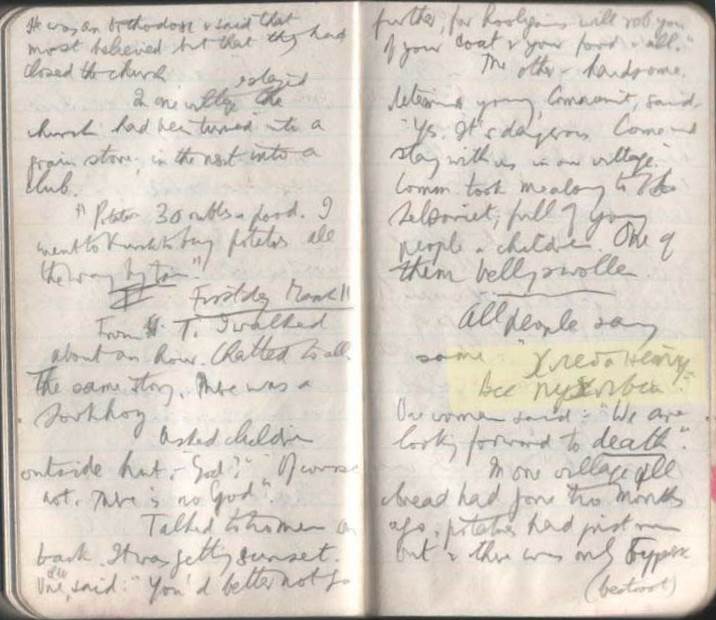 It was an orthodox & said that
most believed but that they had
closed the church
In one village the
church had been turned into a
grain store, in the next into a
club.
"Potatoes 30 roubles a pood. I
went to Kursk to buy potatoes all
the way by train"
First day March 11
From T. I walked
about an hour. Chatted to all.
The same story. There was a
Sovkhoz
Asked children
outside hut, - "God?" "Of course
not. There is no God".
Talked to two men on
bank. It was getting sunset.
One said: "You'd better not go
further, for hooligans will rob you
of your coat & your food & all."
The other - handsome,
young, Communist, said
"Yes. It's dangerous. Come and
stay with us in our village."
Comm. took me along to the
Selsoviet, full of young
people & children. One of
them belly swollen.
All people say
same "Хлеба нету,
Все пухлые."
One woman said: "We are
looking forward to death".
In one village all
bread had gone two months
ago, potatoes had just run
out & there was only буряк
(beetroot)